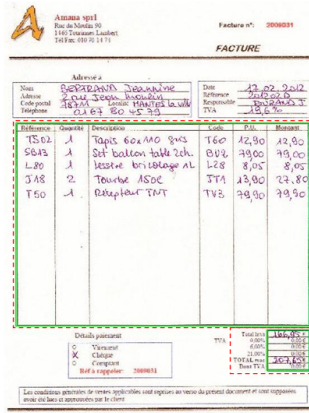 Amana sprl
Rue de Moulin 90
1440 Tourinnes Lambert
Tél/Fax: 010 70 14 71
Facture n°: 2008031
FACTURE
Adressé à
Nom BERTRAND Jeannine
Adresse 2 rue Jean Moulin
Code postal Localité MANTES la ville
Téléphone 0163 80 45 79
Date 17.02.2012
Référence
Responsable DURAND J
TVA 19,6%
Référence Quantité Description Code P.U. Montant
TS02 1 Tapis 60x110 T60 12,90 12,90
SB13 1 Set balcon table 2ch. BV2 79,00 79,00
L80 1 lessive bricolage 1L L28 8,05 8,05
J18 2 Tourbe 150L JT1 13,90 27,80
T50 1 Récepteur TNT TV3 79,90 79,90
Détails paiement
Virement
X Chèque
Comptant
Réf à rappeler: 2008031
Total htva
TVA 0,00% 0,00 €
6,00% 0,00 €
21,00% 0,00 €
TOTAL 207,65
Dont TVA 0,00 €
Les conditions générales de ventes applicables sont reprises au verso du présent document et sont supposées
avoir été lues et approuvées par le client